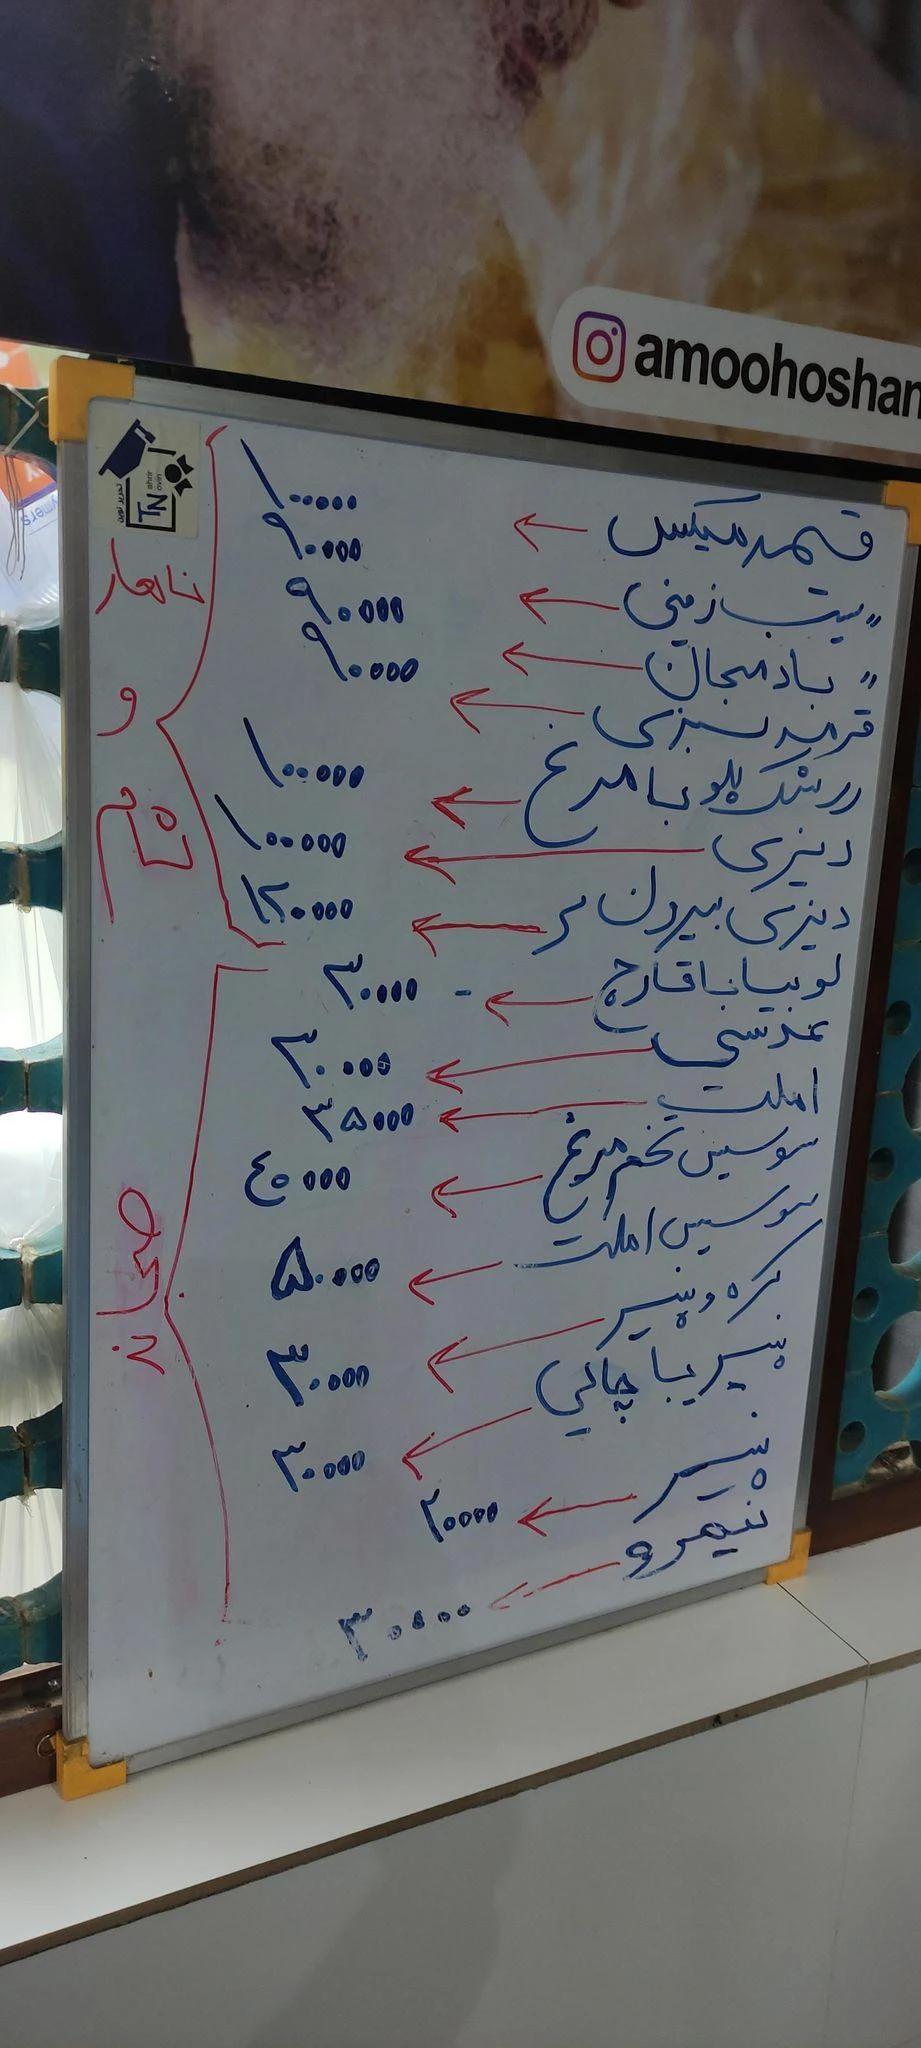 amoohoshan
TN
Tahrir
Novin
تحریر نوین
قیمه میکس ← ۱۰۰۰۰۰
" سیب زمینی ← ۹۰۰۰۰
" بادمجان ← ۹۰۰۰۰
قرمه سبزی ← ۹۰۰۰۰
زرشک پلو با مرغ ← ۱۰۰۰۰۰
دیزی ← ۱۰۰۰۰۰
دیزی بیرون بر ← ۱۲۰۰۰۰
لوبیا با قارچ ← - ۳۰۰۰۰
عدسی ← ۳۰۰۰۰
املت ← ۳۵۰۰۰
سوسیس تخم مرغ ← ۴۰۰۰۰
سوسیس املت ← ۵۰۰۰۰
کره و پنیر ← ۳۰۰۰۰
پنیر با چای ← ۳۰۰۰۰
پنیر ← ۲۰۰۰۰
نیمرو ← ۳۰۰۰۰
ناهار
و
شام
صبحانه